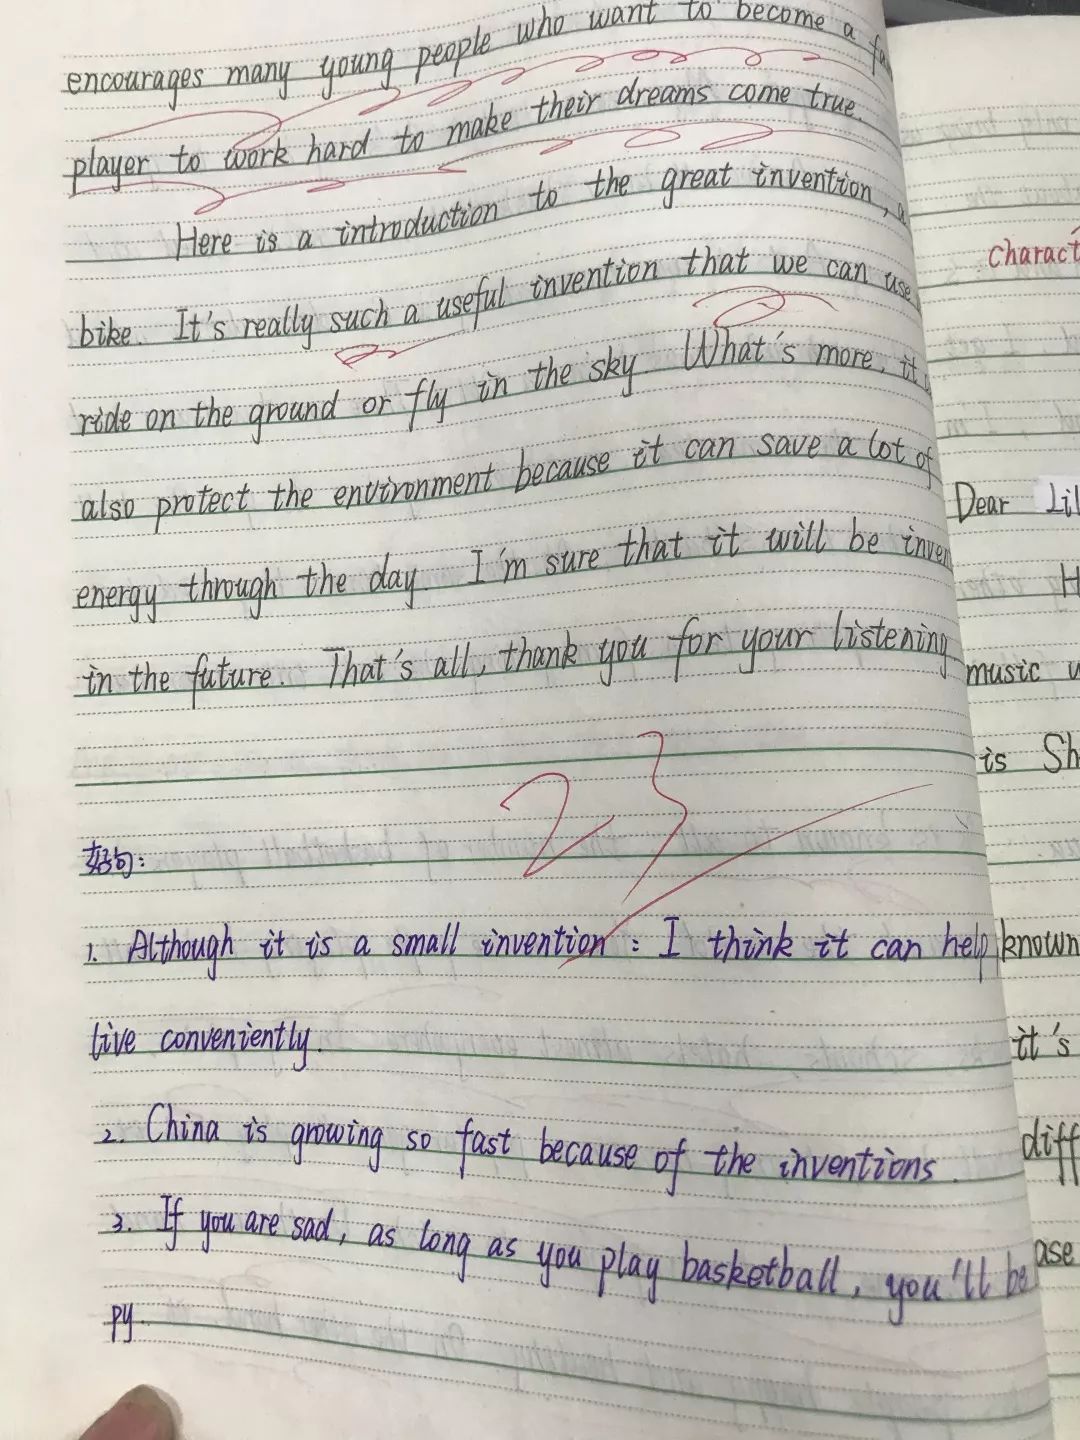 encourages many young people who want to become a
player to work hard to make their dreams come true.
Here is a introduction to the great invention,
bike. It's really such a useful invention that we can use
ride on the ground or fly in the sky. What's more, it
also protect the environment because it can save a lot of
energy through the day. I'm sure that it will be
in the future. That's all, thank you for your listening
23
好句:
1. Although it is a small invention : I think it can help
live conveniently.
2. China is growing so fast because of the inventions.
3. If you are sad, as long as you play basketball, you'll be
py.
Dear
music
is
known
it's